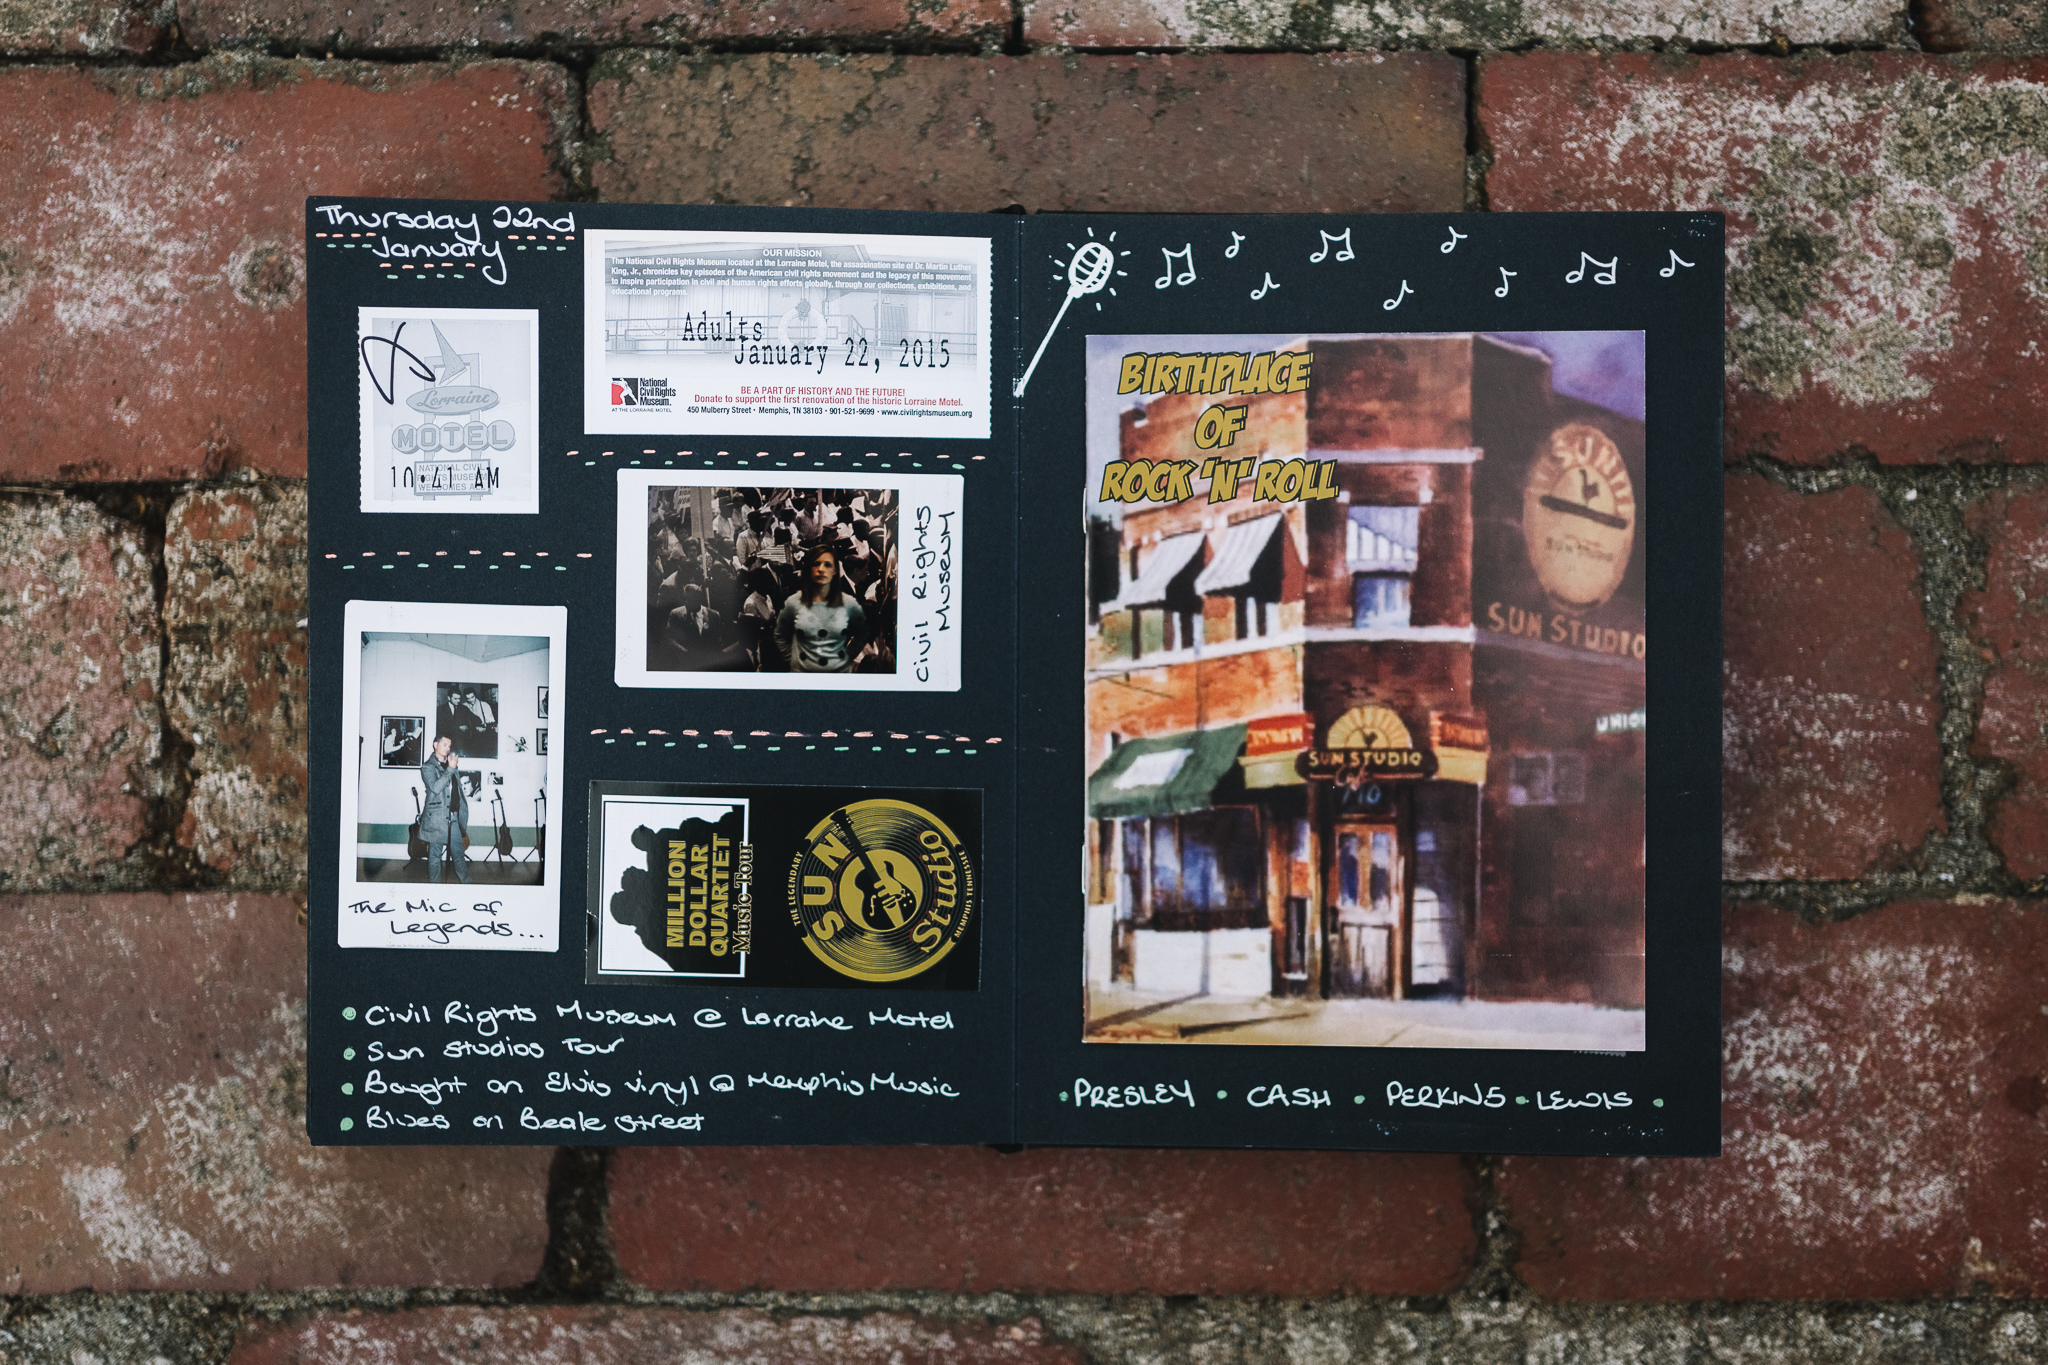 Thursday 22nd
January
Lorraine
MOTEL
NATIONAL CIVIL
RIGHTS MUSEUM
WELCOMES
10:41 AM
OUR MISSION
The National Civil Rights Museum located at the Lorraine Motel, the assassination site of Dr. Martin Luther
King, Jr., chronicles key episodes of the American civil rights movement and the legacy of this movement
to inspire participation in civil and human rights efforts globally, through our collections, exhibitions, and
educational programs.
Adults
January 22, 2015
National
Civil Rights
Museum.
AT THE LORRAINE MOTEL
BE A PART OF HISTORY AND THE FUTURE!
Donate to support the first renovation of the historic Lorraine Motel.
450 Mulberry Street • Memphis, TN 38103 • 901-521-9699 • www.civilrightsmuseum.org
Civil Rights
Museum
The Mic of
Legends...
MILLION
DOLLAR
QUARTET
Music Tour
THE LEGENDARY
SUN
Studio
MEMPHIS TENNESSEE
Civil Rights Museum @ Lorraine Motel
Sun Studios Tour
Bought an Elvis vinyl @ Memphis Music
Blues on Beale Street
BIRTHPLACE
OF
ROCK 'N' ROLL
SUN STUDIO
UNION
SUN STUDIO
Café
710
• PRESLEY • CASH • PERKINS • LEWIS •